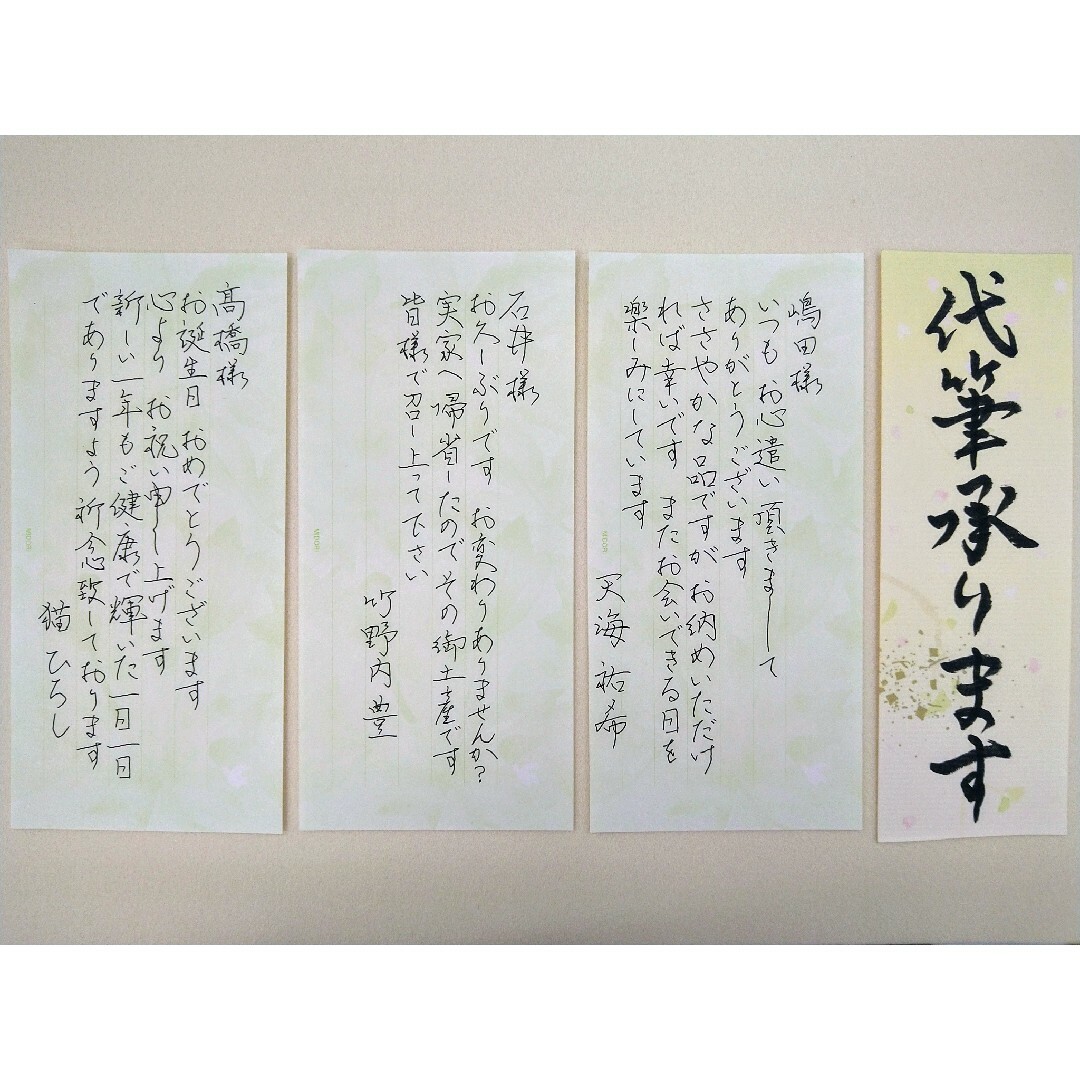 代筆承ります
嶋田様
いつもお心遣い頂きまして
ありがとうございます
ささやかな品ですが お納めいただけ
れば幸いです またお会いできる日を
楽しみにしています
天海祐希
MIDORI
石井様
お久しぶりです お変わりありませんか?
実家へ帰省したのでその御土産です
皆様で召し上って下さい
竹野内豊
MIDORI
髙橋様
お誕生日 おめでとうございます
心より お祝い申し上げます
新しい一年もご健康で輝いた一日一日
でありますよう 祈念致しております
猫ひろし
MIDORI